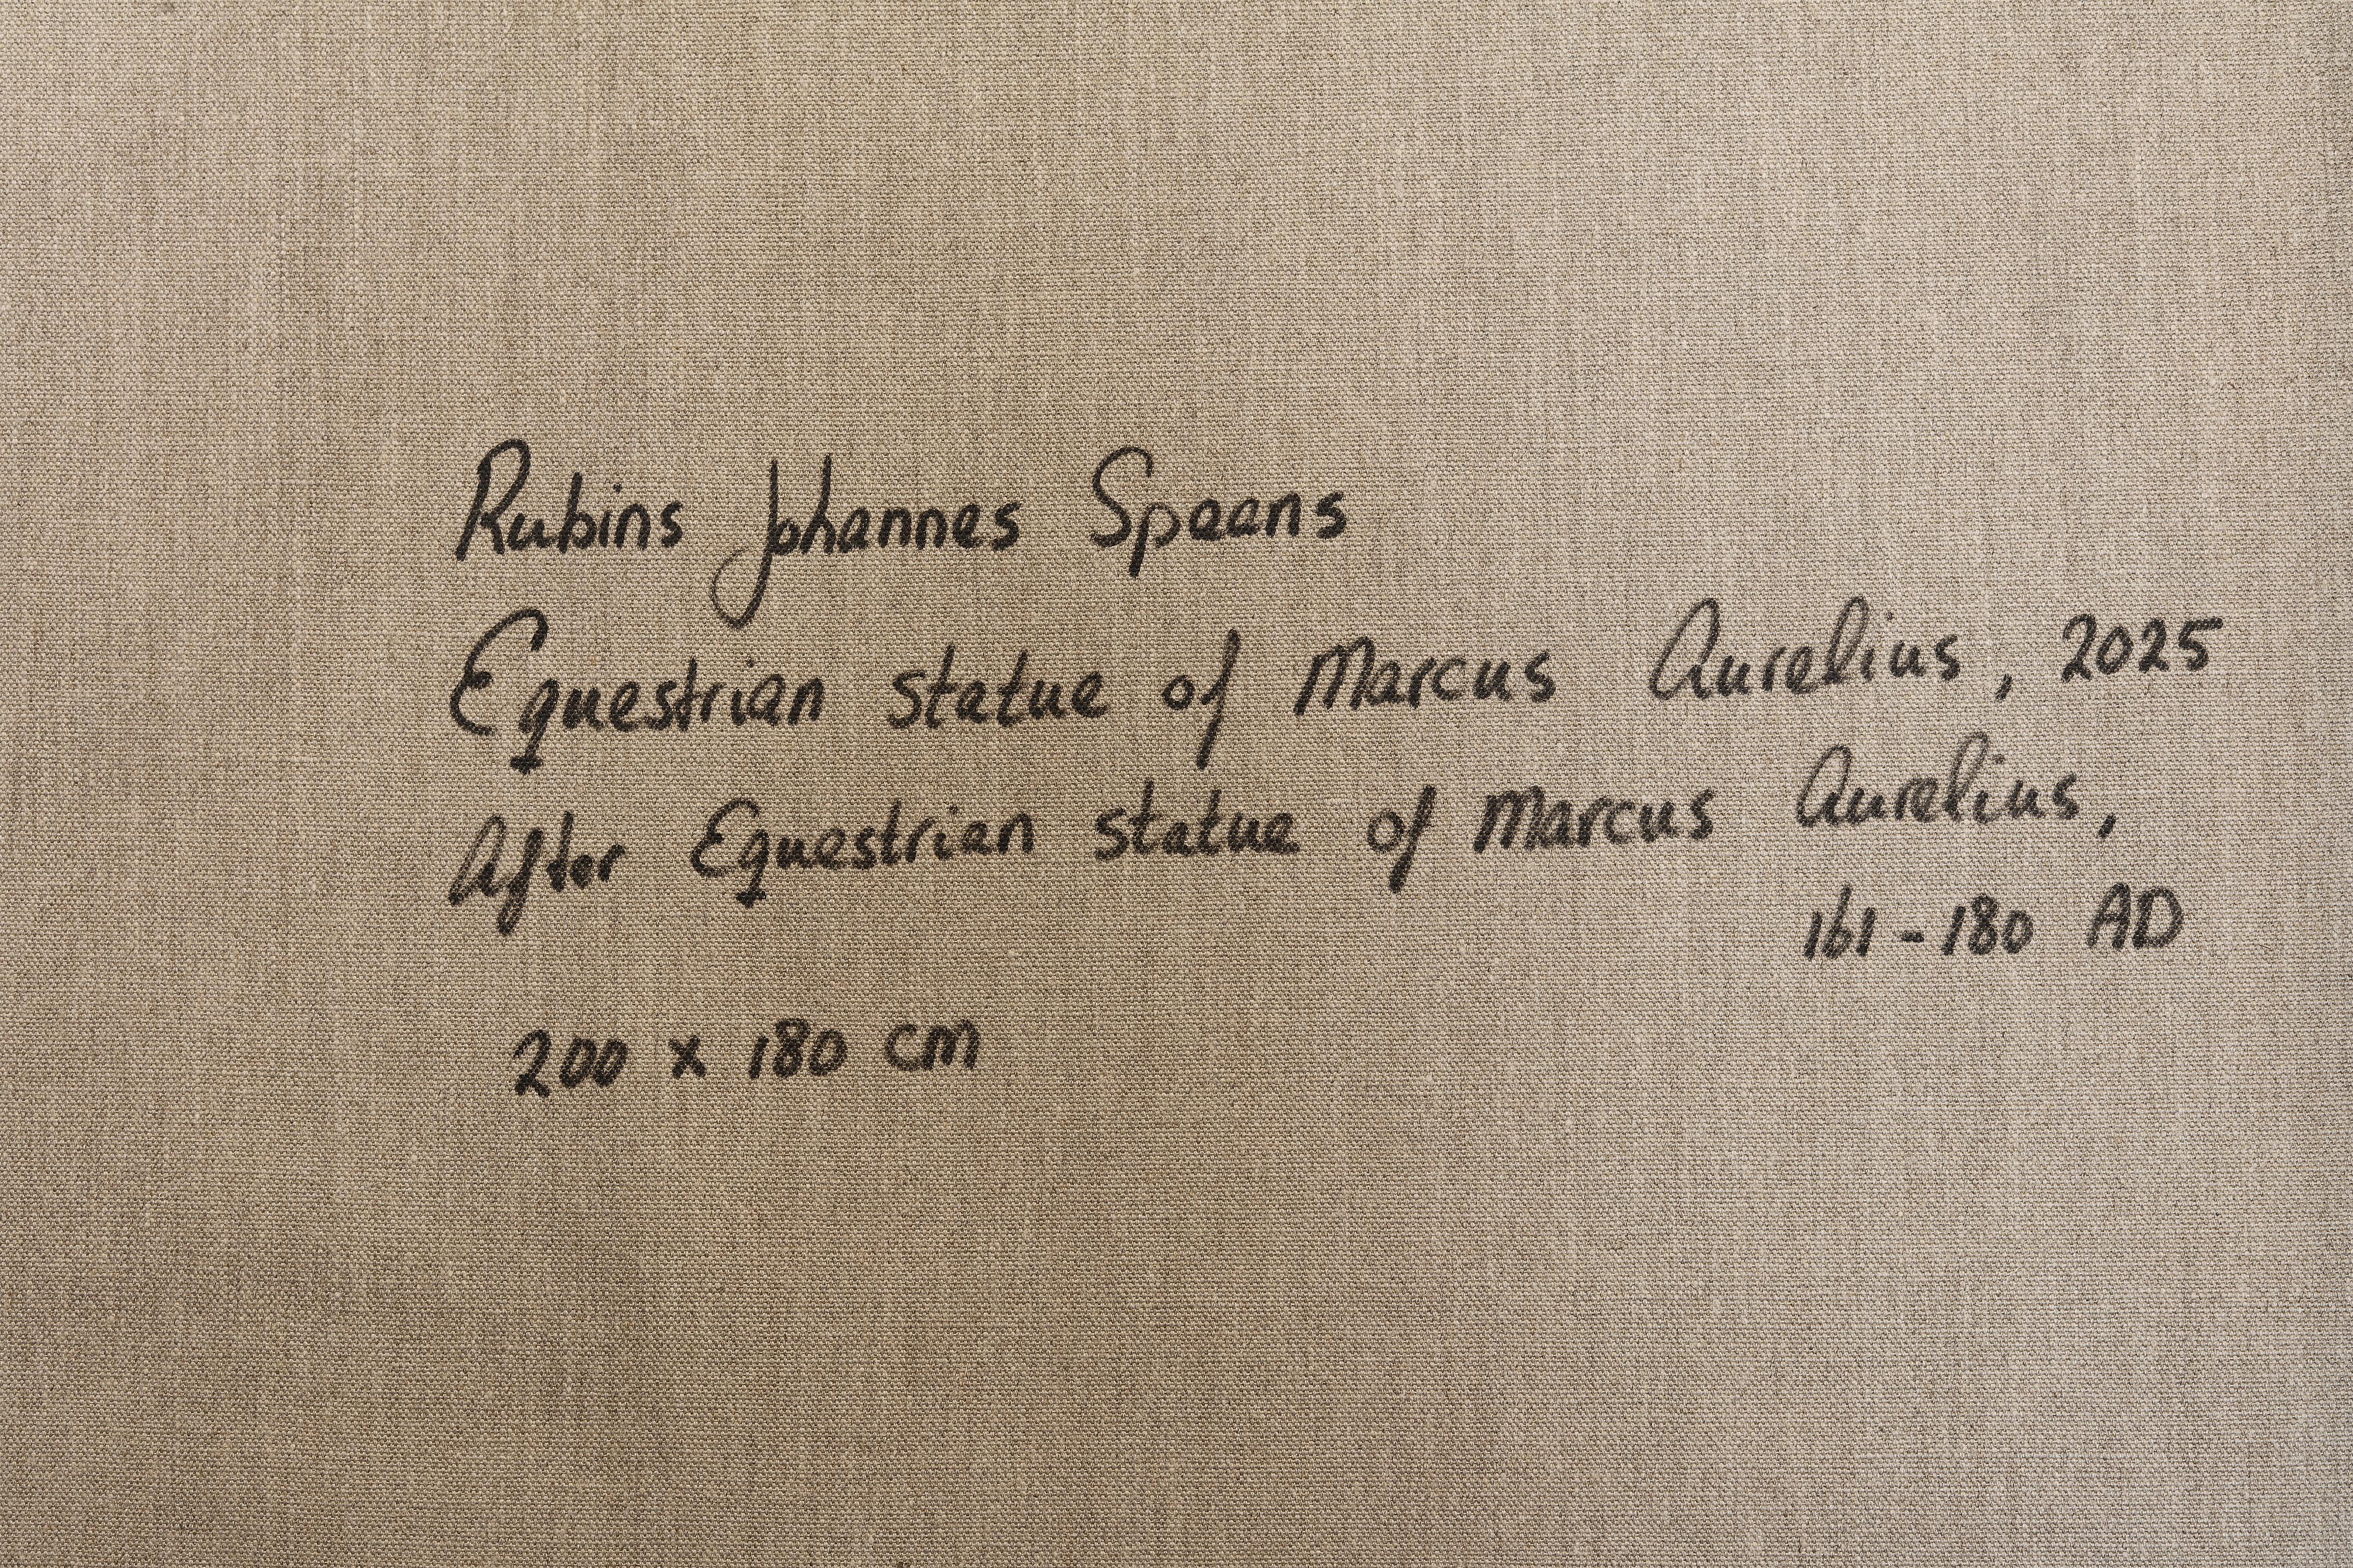 Rubins Johannes Spaans
Equestrian statue of Marcus Aurelius, 2025
After Equestrian statue of Marcus Aurelius,
161-180 AD
200 x 180 cm